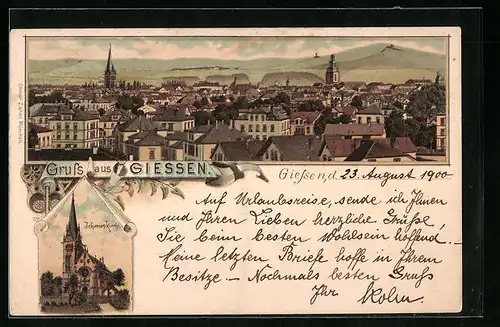 Gruß aus GIESSEN.
Gießen, d. 23. August 1900
Johanneskirche
Auf Urlaubsreise, sende ich Ihnen
und Ihren Lieben herzliche Grüße,
Sie beim besten Wohlsein hoffend.
Meine letzten Briefe hoffe in Ihrem
Besitze – Nochmals besten Gruß
Ihr Kolm.